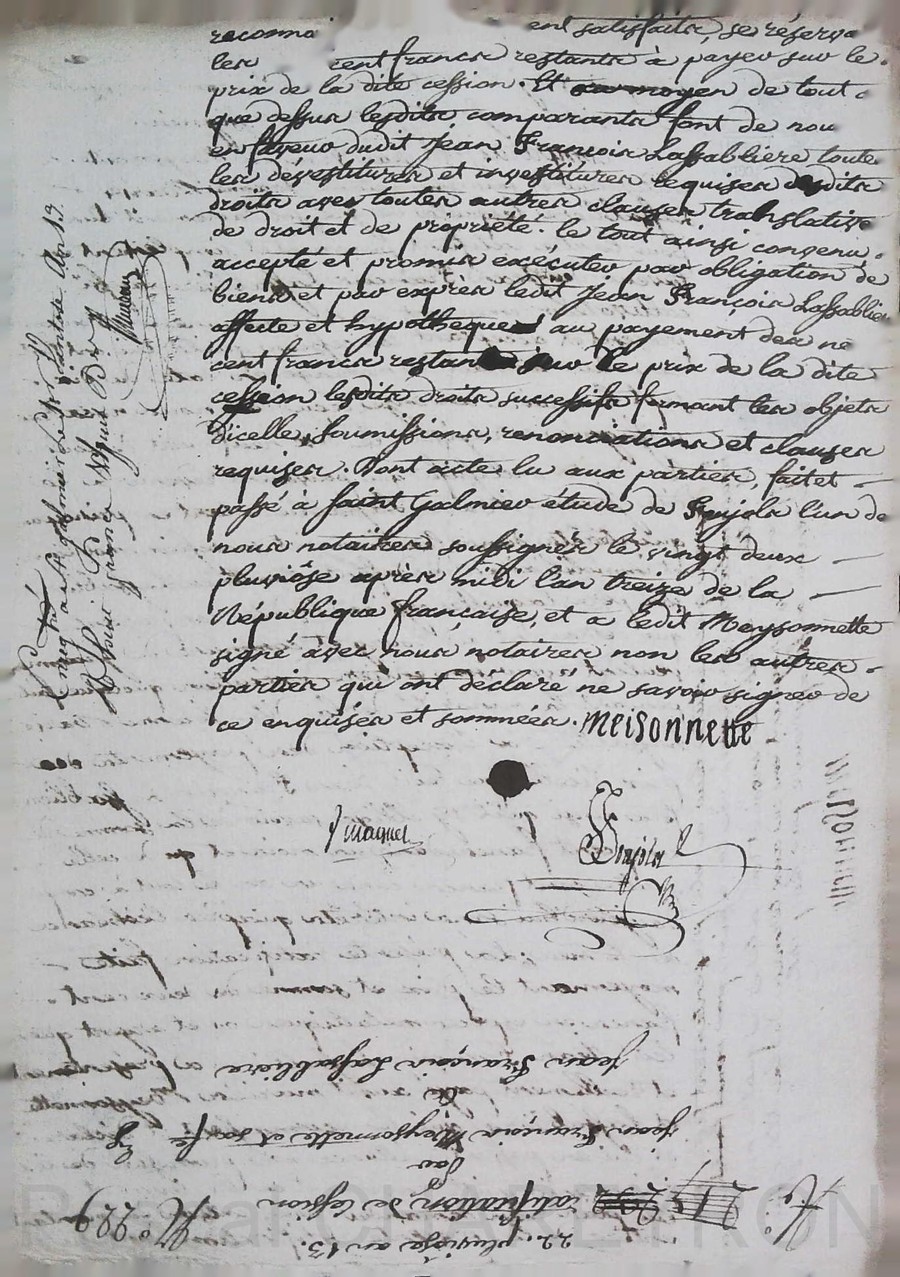 reconno ent satisfaits, se réserve
les cent francs restants à payer sur le
prix de la dite cession. Et au moyen de tout
que dessus lesdits comparants font de nou
en faveur dudit Jean François Lassabliere toute
les dévestitures et investitures requises desdits
droits avec toutes autres clauses translative
de droit et de propriété. le tout ainsi convenu
accepté et promis exécuter par obligation de
biens et par exprès ledit Jean François Lassablie
affecte et hypothèque au payement des ne
cent francs restants sur le prix de la dite
cession lesdits droits successifs formant les objets
d'icelle, soumissions, renonciations et clauses
requises. Dont acte lu aux parties, fait et
passé à Saint Galmier étude de Pujols l'un de
nous notaires soussignés le vingt deux
pluviôse après midi l'an treize de la
République française, et a ledit Meysonnette
signé avec nous notaires non les autres
parties qui ont déclaré ne savoir signer de
ce enquises et sommées. Meisonnette
Pujols
an 13.
francs
Jean François Lassabliere
Jean François Meysonnette et sa fe
par
ratification de cession
N.° 229
22. pluviôse an 13.
N.°